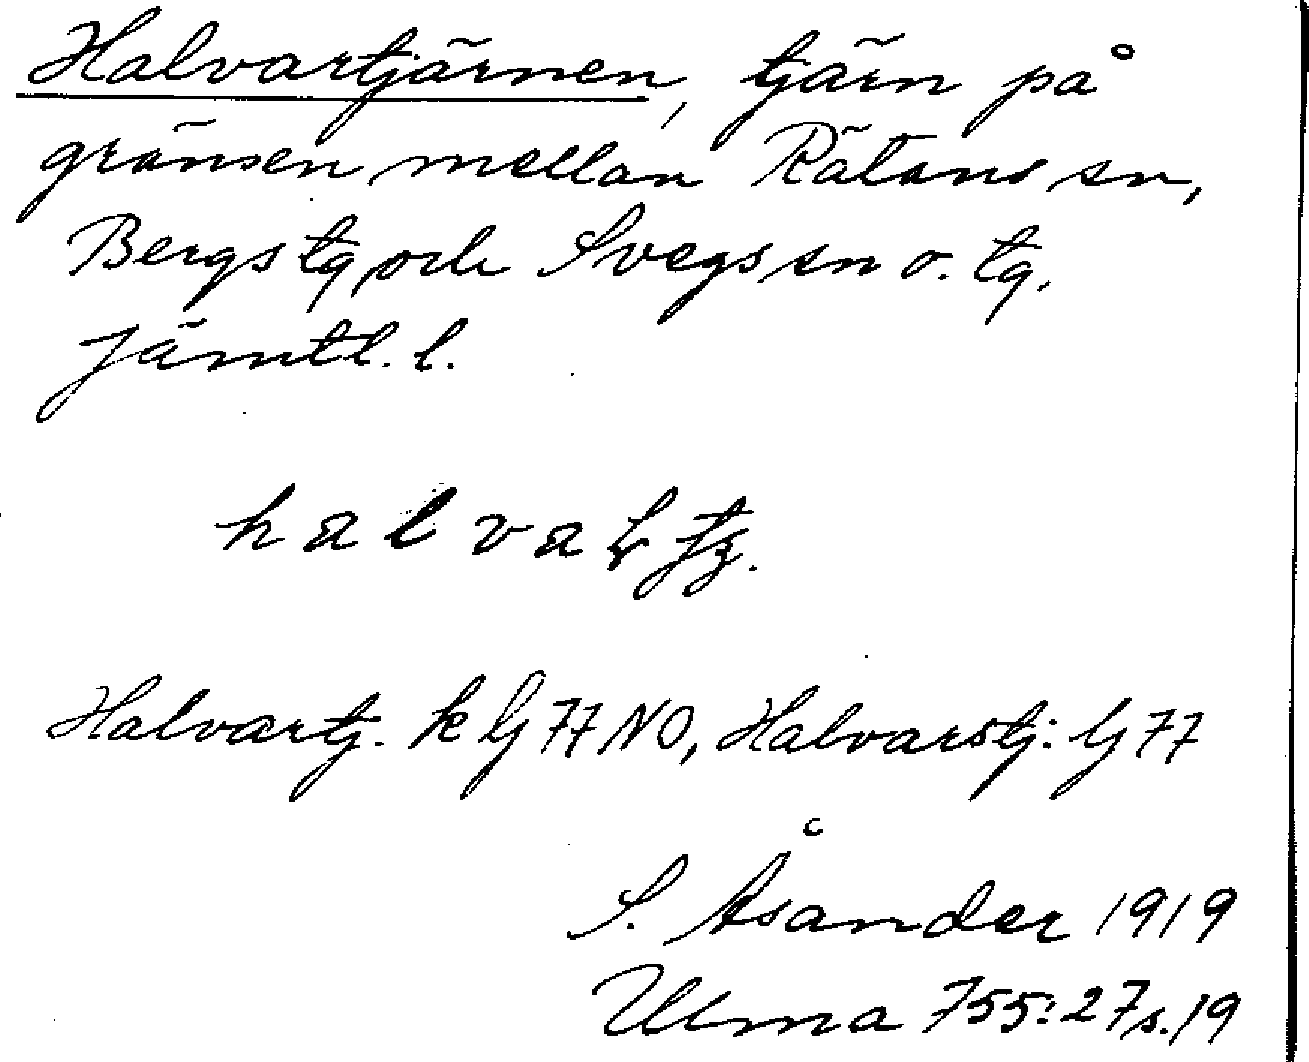 Halvartjärnen, tjärn på
gränsen mellan Rätans sn,
Bergs tg och Svegs sn o. tg.
Jämtl. l.
halva
Halvartj. k G 77 NO, Halvarstj: G 77
S. Åsander 1919
Ulma 755:27 s. 19